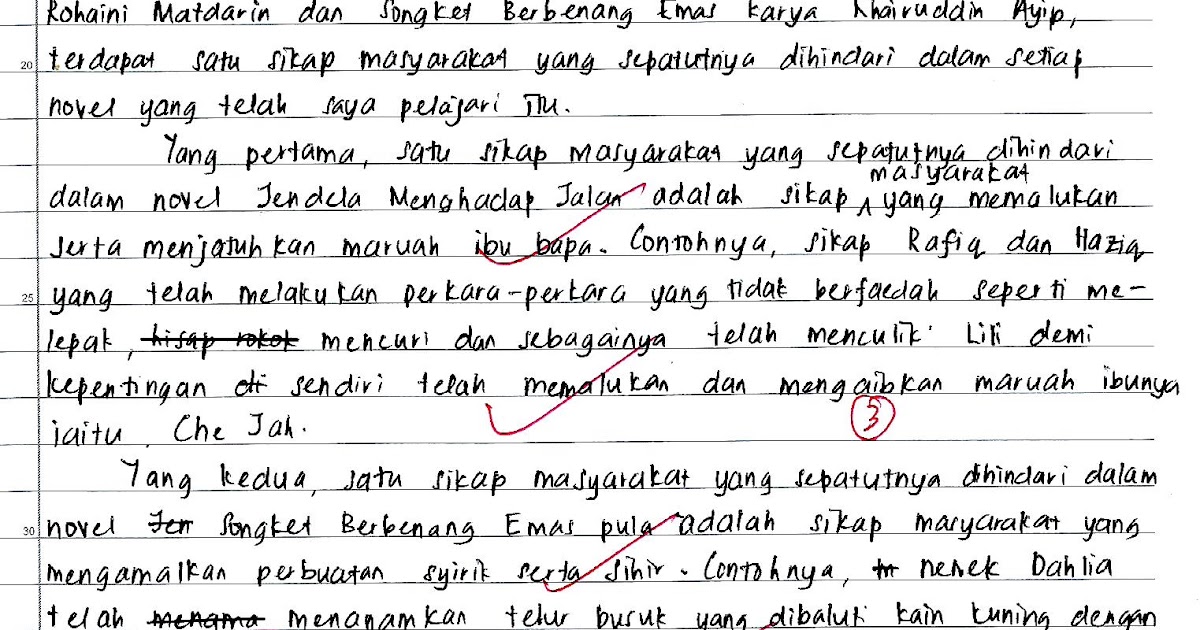 Rohaini Matdarin dan Songket Berbenang Emas karya Khairuddin Ayip,
20 terdapat satu sikap masyarakat yang sepatutnya dihindari dalam setiap
novel yang telah saya pelajari itu.
Yang pertama, satu sikap masyarakat yang sepatutnya dihindari
masyarakat
dalam novel Jendela Menghadap Jalan adalah sikap ^ yang memalukan
serta menjatuhkan maruah ibu bapa. Contohnya, sikap Rafiq dan Haziq
25 yang telah melakukan perkara-perkara yang tidak berfaedah seperti me-
lepak, hisap rokok mencuri dan sebagainya telah menculik Lili demi
kepentingan di sendiri telah memalukan dan mengaibkan maruah ibunya
iaitu Che Jah.
3
Yang kedua, satu sikap masyarakat yang sepatutnya dihindari dalam
30 novel Jen Songket Berbenang Emas pula adalah sikap masyarakat yang
mengamalkan perbuatan syirik serta sihir. Contohnya, nenek Dahlia
telah menama menanamkan telur buruk yang dibaluti kain kuning dengan